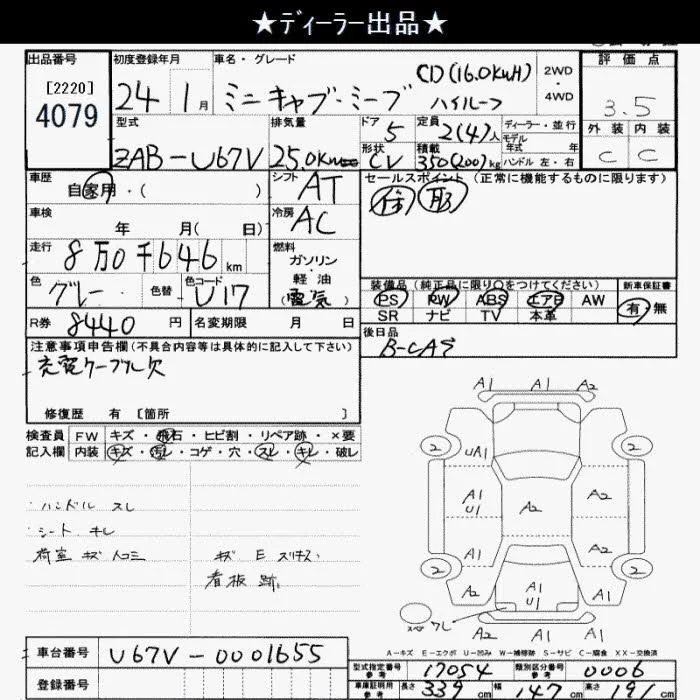 ★ディーラー出品★
出品番号 初度登録年月 車名・グレード 評価点
[2220]
4079
24 1月 ミニキャブ・ミーブ CD(16.0kWH) ハイルーフ 2WD 4WD 3.5
型式 排気量 ドア 定員 ディーラー・並行 外装 内装
ZAB-U67V 25.0KW 5 2(4)人 モデル年式 年
形状 積載 C C
CV 350(200)kg ハンドル 左・右
車歴 自家用・( ) シフト AT セールスポイント (正常に機能するものに限ります)
車検 年 月( 日) 冷房 AC 保 取
走行 8万0千646km 燃料 ガソリン・軽油 (電気)
色 グレー 色替 色コード U17
装備品 (純正品に限り○をつけてください) 新車保証書
PS PW ABS エアB AW 有・無
SR ナビ TV 本革
R券 8440円 名変期限 月 日 後日品
B-CAS
注意事項申告欄(不具合内容等は具体的に記入して下さい)
充電ケーブル欠
修復歴 有 [箇所 ]
検査員 FW キズ・飛石・ヒビ割・リペア跡・×要
記入欄 内装 キズ・汚レ・コゲ・穴・スレ・キレ・破レ
・ハンドル スレ
・シート キレ
荷室 キズ 凹コミ キズ E スリキズ
看板 跡
A1 A1 A2
2 2
UA1
A1 U1 A2 A2
A1 A2
2 2
A2 A1 U1 A1
スペア ワレ
U1 A2 A1
A-キズ E-エクボ U-凹み W-補修跡 S-サビ C-腐食 XX-交換済
車台番号 U67V-0001655
登録番号
型式指定番号 参考 17054 類別区分番号 参考 0006
車庫証明用 参考 長さ 339cm 幅 147cm 高さ 191cm